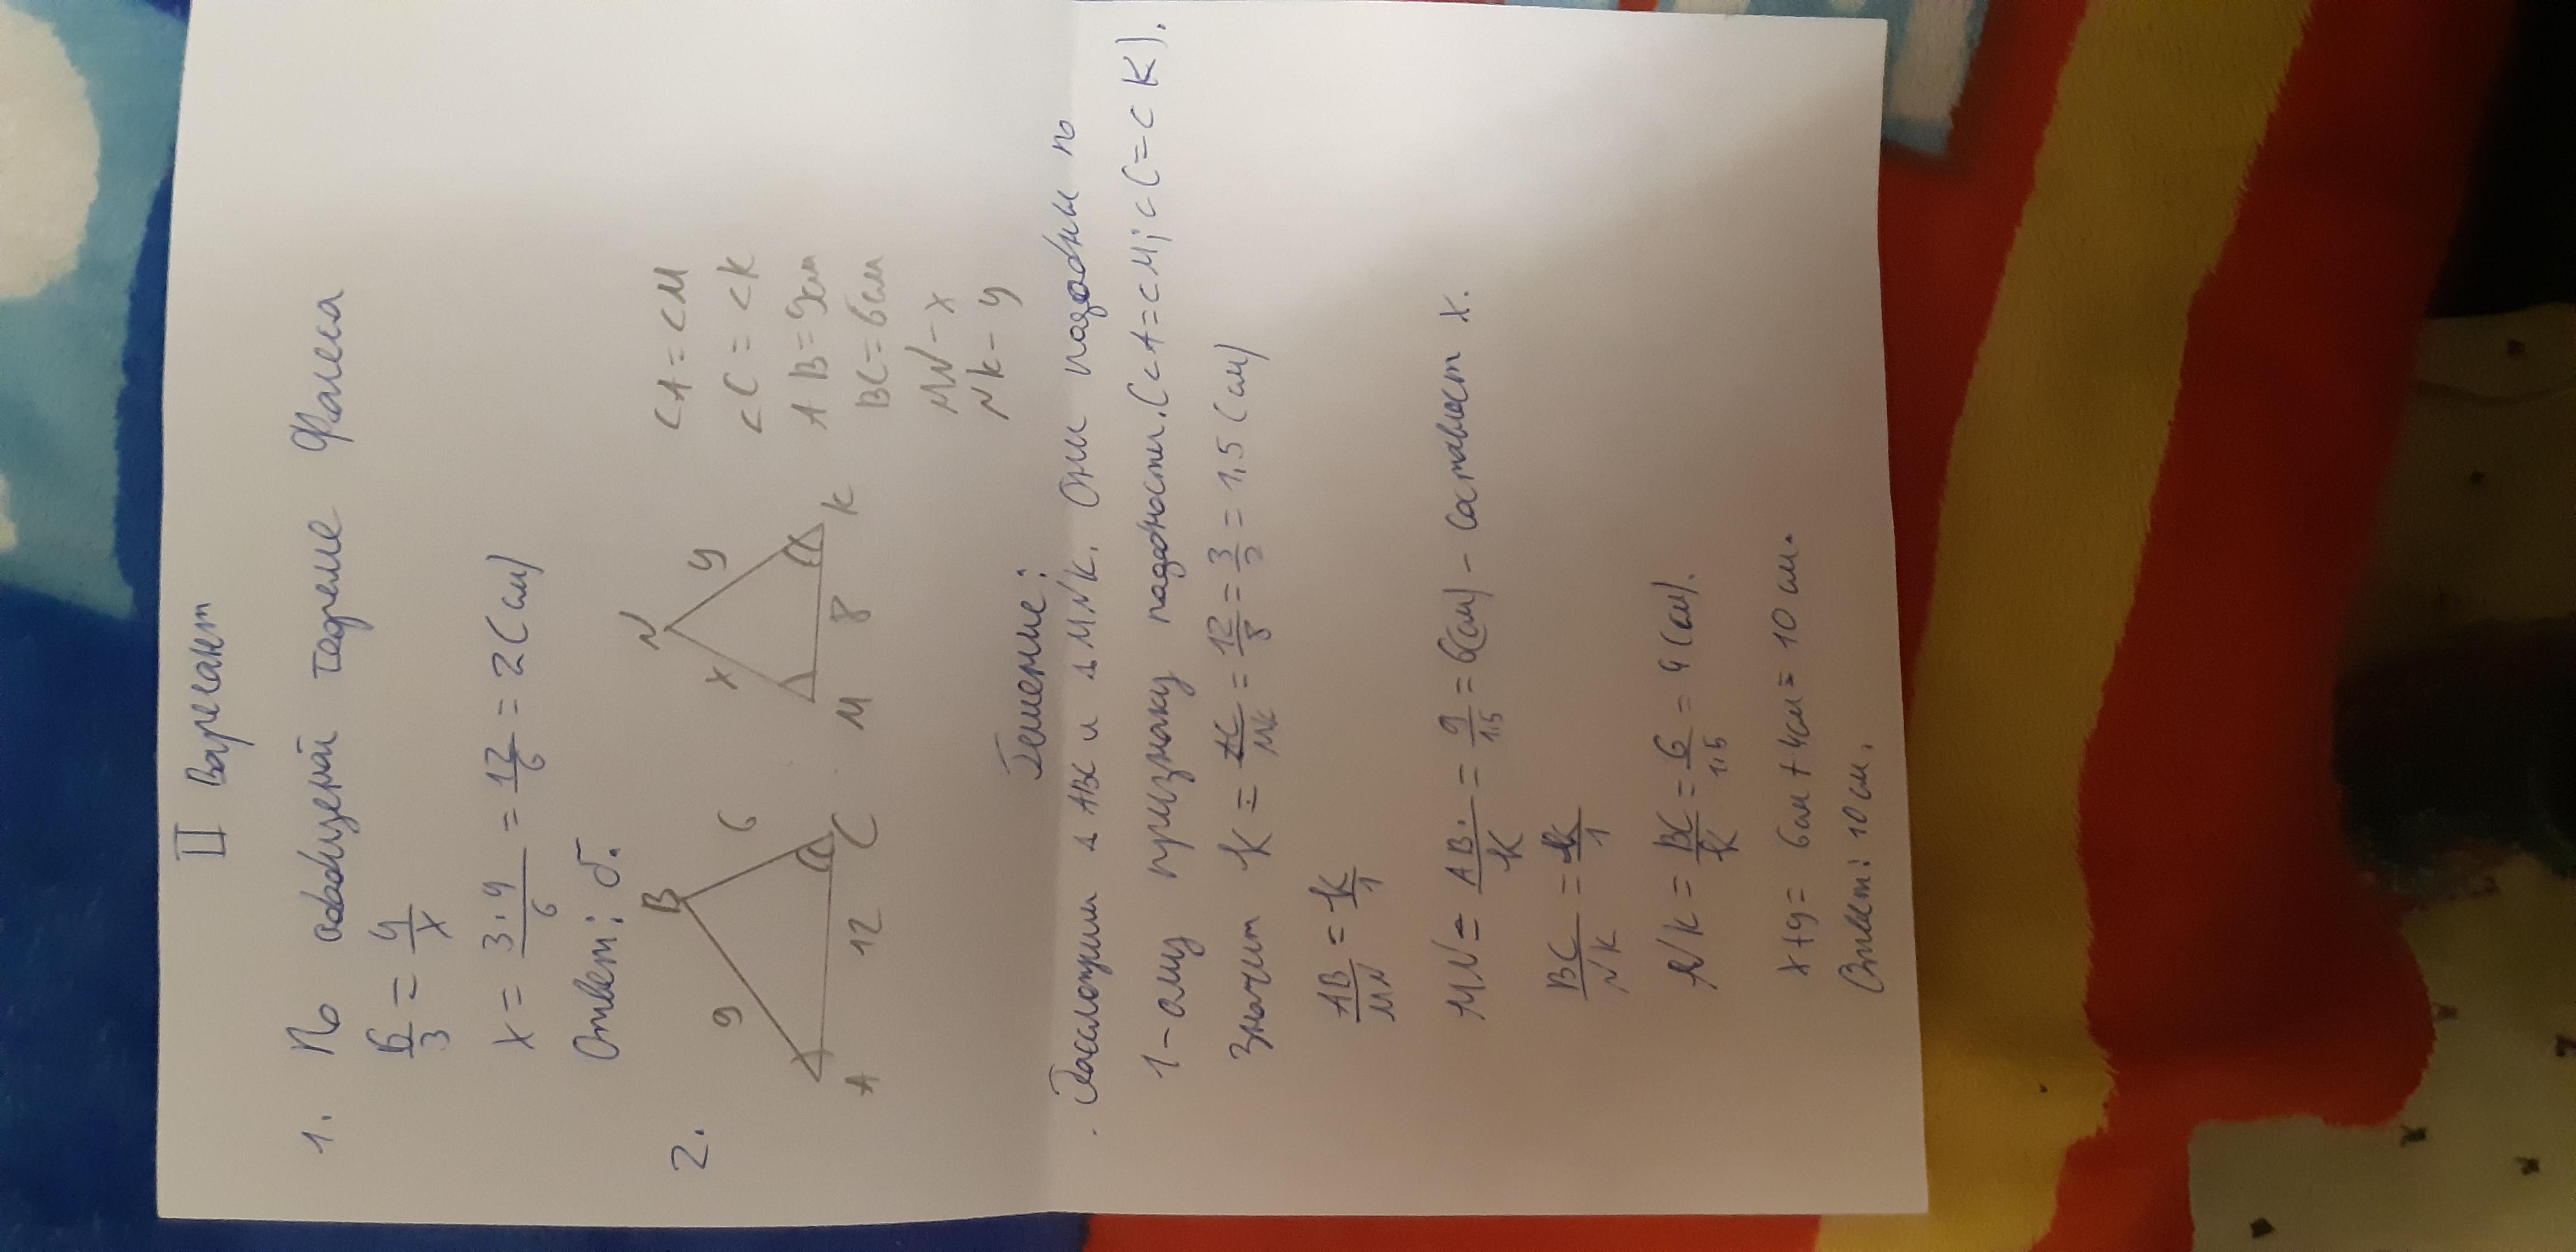 II Вариант
1. По обобщеной теореме Фалеса
6/3 = 4/x
x = 3·4/6 = 12/6 = 2(см)
Ответ: б.
2.
B
9
6
A
12
C
N
x
y
M
8
K
<A = <M
<C = <K
AB = 9см
BC = 6см
MN - x
NK - y
Решение:
Рассмотрим ΔABC и ΔMNK. Они подобны по
1-ому признаку подобности. (<A = <M; <C = <K).
Значит k = AC/MK = 12/8 = 3/2 = 1,5 (см)
AB/MN = k/1
MN = AB/k = 9/1,5 = 6(см) - составляет x.
BC/NK = k/1
NK = BC/k = 6/1,5 = 4(см).
x+y = 6см + 4см = 10 см.
Ответ: 10 см.